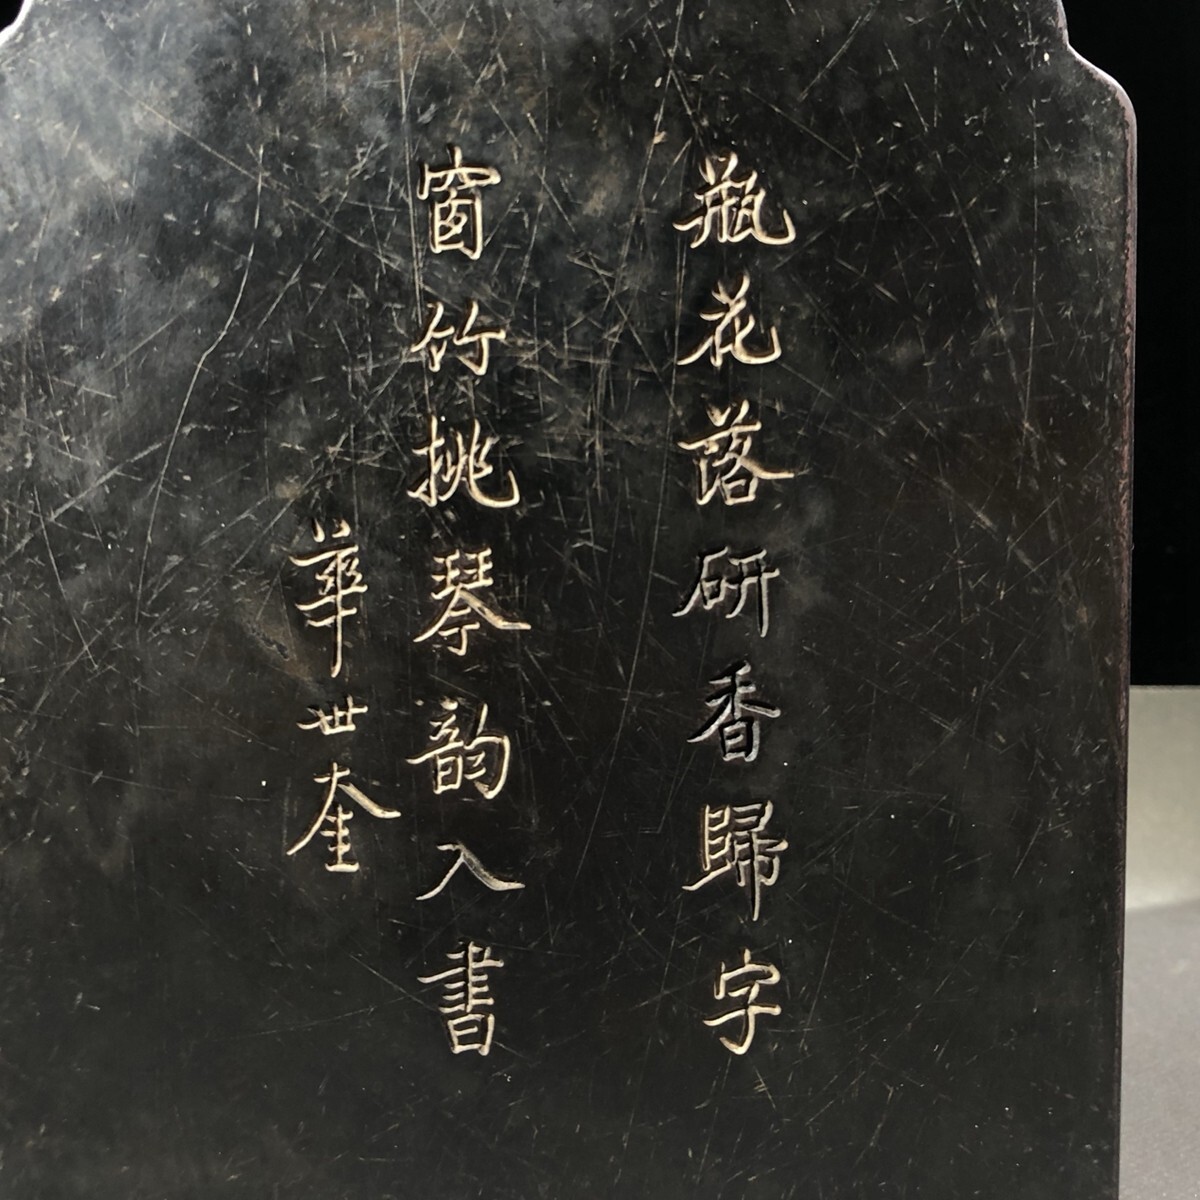 瓶花落研香歸字
窗竹挑琴韵入書
華世奎